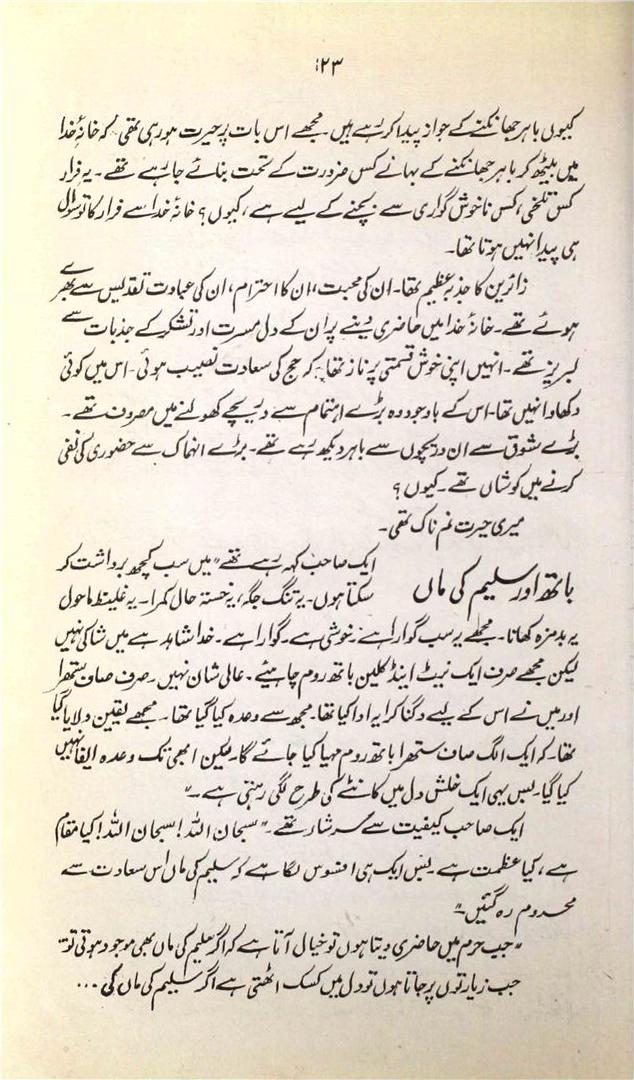 ۱۲۳
کیوں باہر جھانکنے کے جواز پیدا کر رہے ہیں۔ مجھے اس بات پر حیرت ہو رہی تھی کہ خانۂ خدا
میں بیٹھ کر باہر جھانکنے کے بہانے کس ضرورت کے تحت بنائے جا رہے تھے۔ یہ فرار
کس تلخی، کس ناخوش گواری سے بچنے کے لیے ہے، کیوں؟ خانۂ خدا سے فرار کا تو سوال
ہی پیدا نہیں ہوتا تھا۔
زائرین کا جذبہ عظیم تھا۔ ان کی محبت، ان کا احترام، ان کی عبادت تقدیس سے بھرے
ہوئے تھے۔ خانۂ خدا میں حاضری دینے پر ان کے دل مسرت اور تشکر کے جذبات سے
لبریز تھے۔ انہیں اپنی خوش قسمتی پر ناز تھا کہ حج کی سعادت نصیب ہوئی۔ اس میں کوئی
دکھاوا نہیں تھا۔ اس کے باوجود وہ بڑے اہتمام سے دریچے کھولنے میں مصروف تھے۔
بڑے شوق سے ان دریچوں سے باہر دیکھ رہے تھے۔ بڑے انہماک سے حضوری کی نفی
کرنے میں کوشاں تھے۔ کیوں؟
میری حیرت غم ناک تھی۔
باتھ اور سلیم کی ماں
ایک صاحب کہہ رہے تھے "میں سب کچھ برداشت کر
سکتا ہوں۔ یہ تنگ جگہ، یہ خستہ حال کمرا۔ یہ غلیظ ماحول
یہ بدمزہ کھانا۔ مجھے یہ سب گوارا ہے۔ خوشی ہے۔ گوارا ہے۔ خدا شاہد ہے میں شاکی نہیں
لیکن مجھے صرف ایک نیٹ اینڈ کلین باتھ روم چاہیئے۔ عالی شان نہیں۔ صرف صاف ستھرا
اور میں نے اس کے لیے دگنا کرایہ ادا کیا تھا۔ مجھ سے وعدہ کیا گیا تھا۔ مجھے یقین دلایا گیا
تھا۔ کہ ایک الگ صاف ستھرا باتھ روم مہیا کیا جائے گا۔ لیکن ابھی تک وعدہ ایفا نہیں
کیا گیا۔ بس یہی ایک خلش دل میں کانٹے کی طرح لگی رہتی ہے۔"
ایک صاحب کیفیت سے سرشار تھے۔ "سبحان اللہ! سبحان اللہ! کیا مقام
ہے، کیا عظمت ہے۔ بس ایک ہی افسوس لگا ہے کہ سلیم کی ماں اس سعادت سے
محروم رہ گئیں۔"
"جب حرم میں حاضری دیتا ہوں تو خیال آتا ہے کہ اگر سلیم کی ماں بھی موجود ہوتی تو۔
جب زیارتوں پر جاتا ہوں تو دل میں کسک اٹھتی ہے اگر سلیم کی ماں بھی ۔۔۔